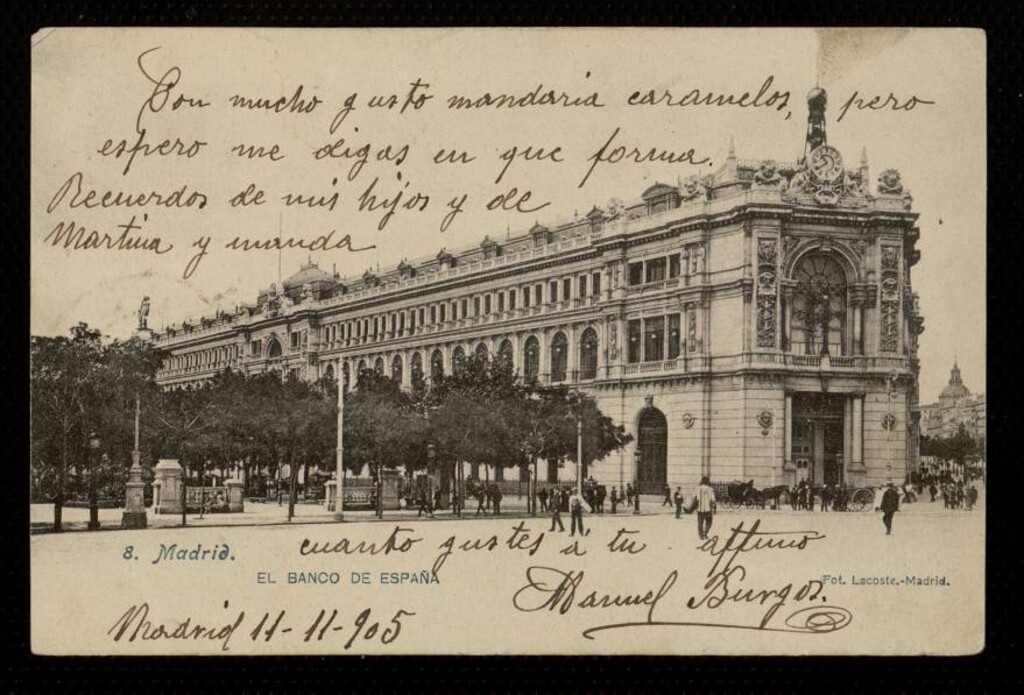 Con mucho gusto mandaria caramelos, pero
espero me digas en que forma.
Recuerdos de mis hijos y de
Martina y manda
cuanto gustes á tu affmo
8. Madrid.
EL BANCO DE ESPAÑA
Fot. Lacoste.-Madrid.
Manuel Burgos.
Madrid 11-11-905